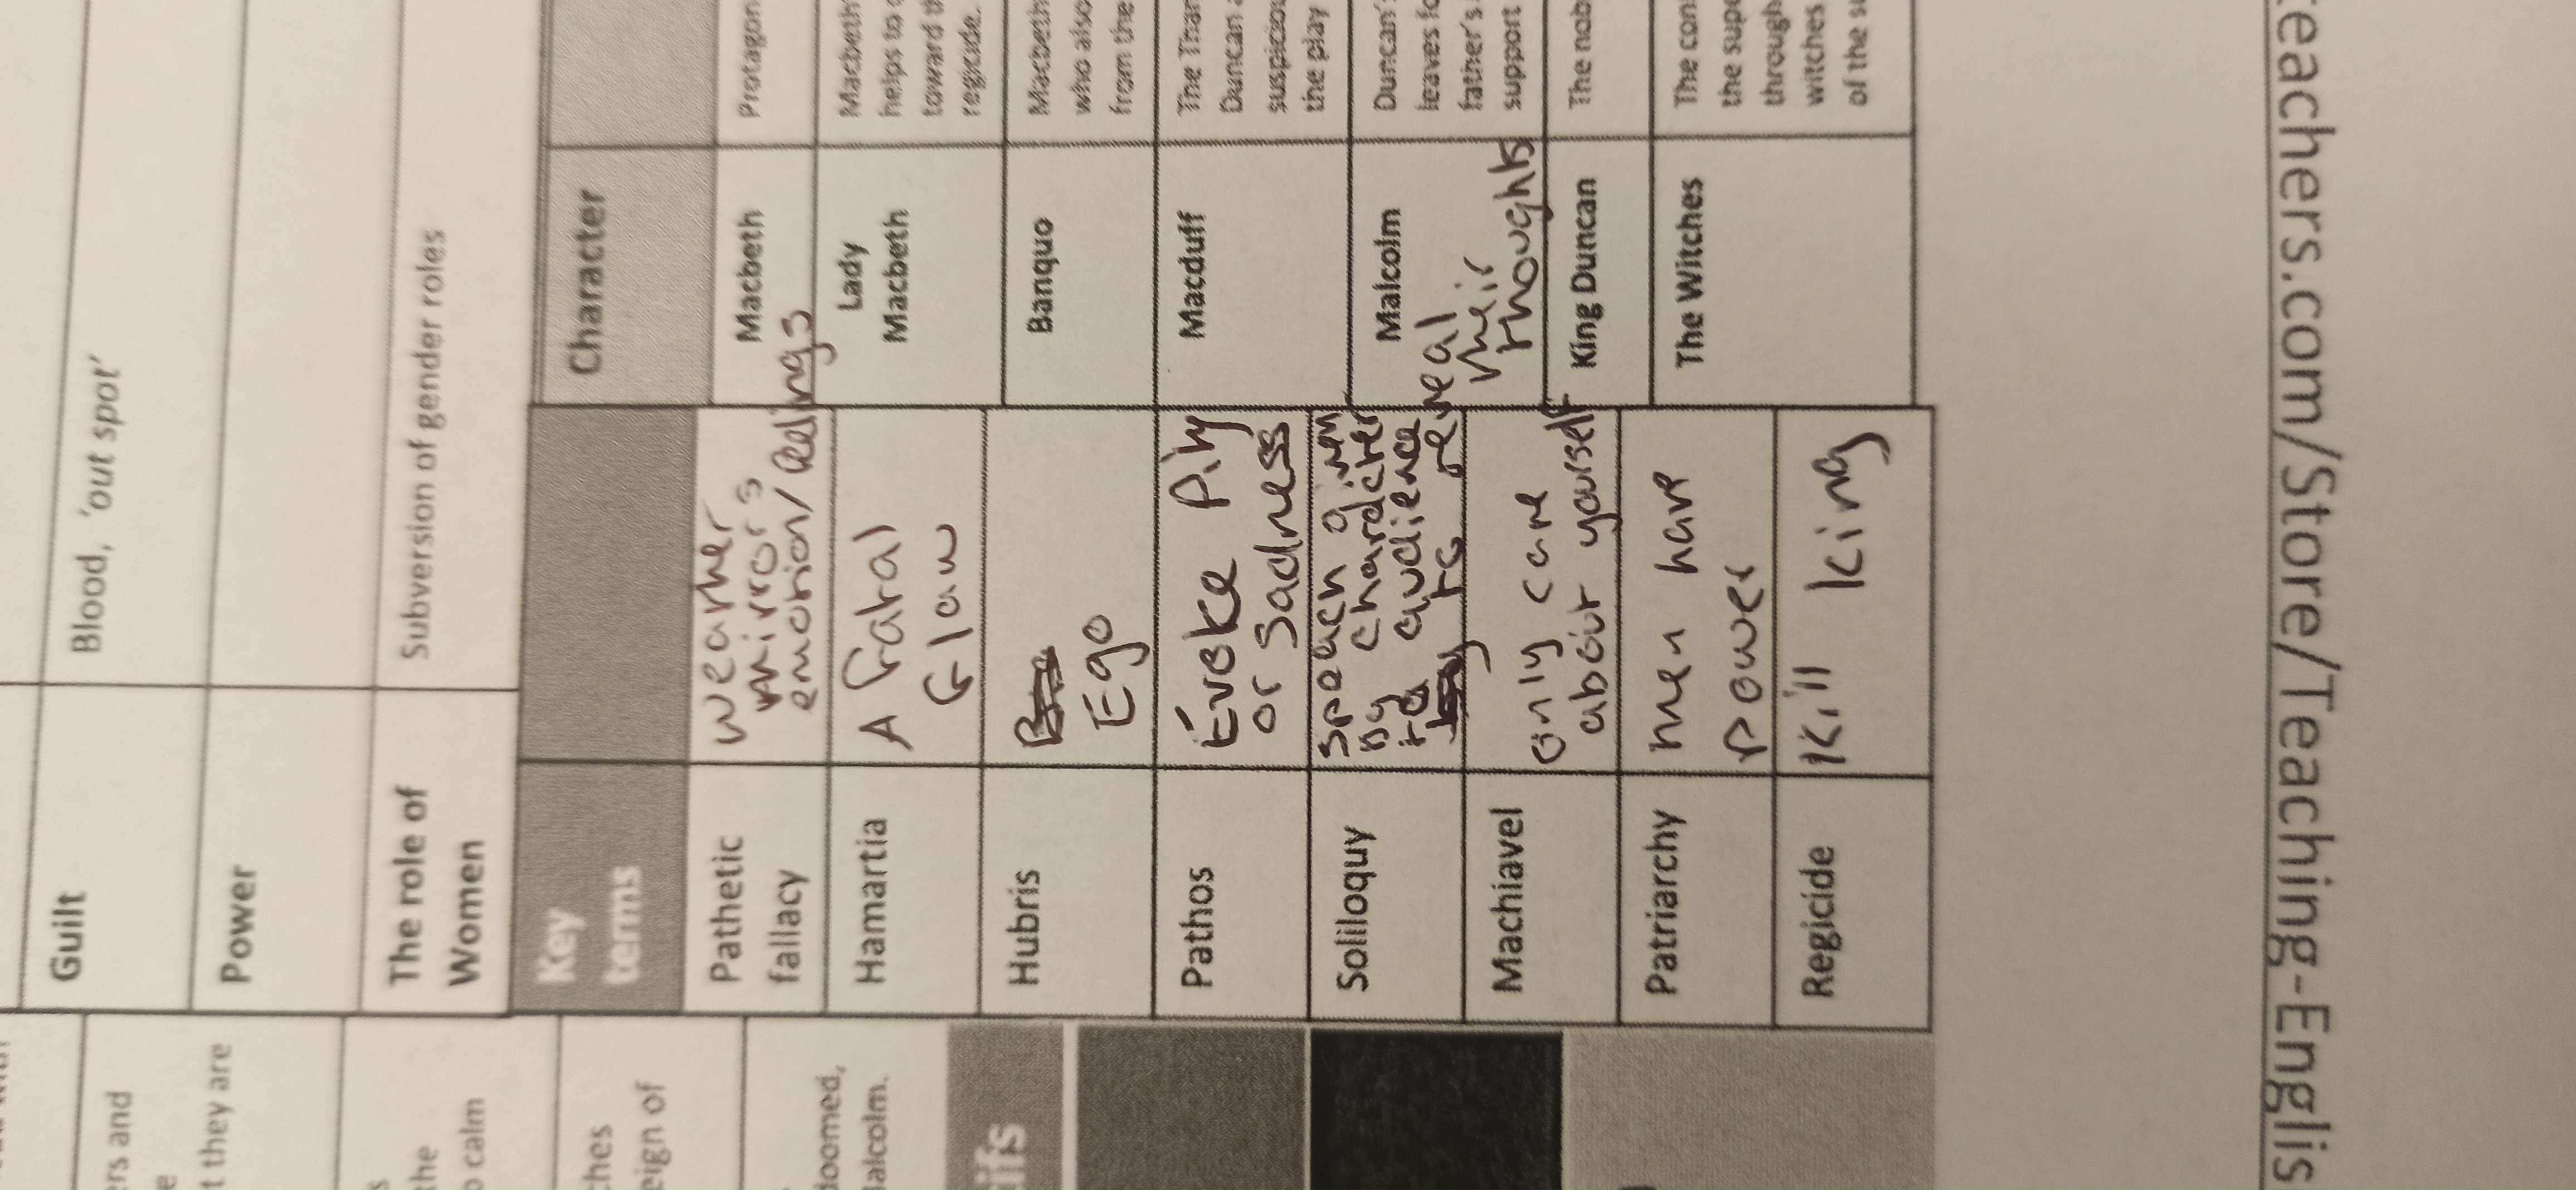 Guilt
Blood, 'out spot'
ers and
e
t they are
Power
s
the
o calm
The role of
Women
Subversion of gender roles
ches
eign of
doomed,
Malcolm.
ifs
Key
terms
Pathetic
fallacy
weather
mirrors
emotion/feelings
Hamartia
A fatal
flaw
Hubris
Ego
Pathos
Evoke Pity
or sadness
Soliloquy
speach given
by character
to audience
to reveal
their
thoughts
Machiavel
only care
about yourself
Patriarchy
men have
power
Regicide
Kill king
Character
Macbeth
Protagon
Lady
Macbeth
Macbeth'
helps to
toward th
regicide.
Banquo
Macbeth
who also
from the
Macduff
The Than
Duncan a
suspiciou
the play
Malcolm
Duncan's
leaves fo
father's
support
King Duncan
The nob
The Witches
The con
the supe
through
witches
of the su
eachers.com/Store/Teaching-Englis